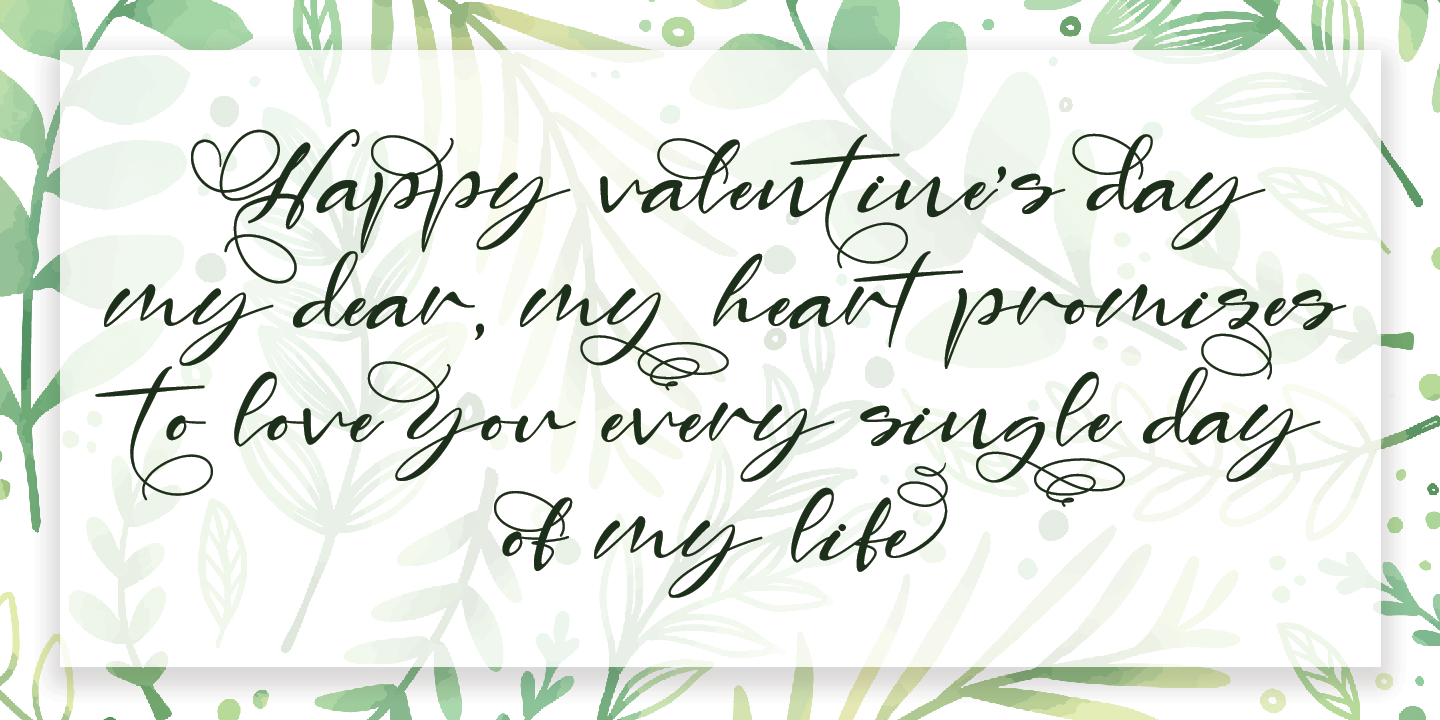 Happy valentine's day
my dear, my heart promises
to love you every single day
of my life